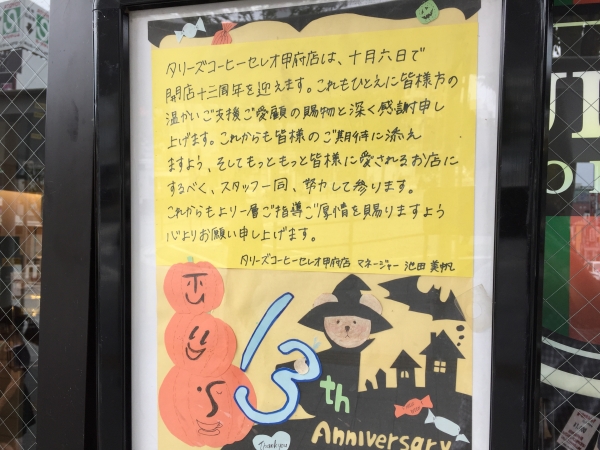 タリーズコーヒーセレオ甲府店は、十月六日で
開店十三周年を迎えます。これもひとえに皆様方の
温かいご支援ご愛顧の賜物と深く感謝申し
上げます。これからも皆様のご期待に添え
ますよう、そしてもっともっと皆様に愛されるお店に
するべく、スタッフ一同、努力して参ります。
これからもより一層ご指導ご厚情を賜りますよう
心よりお願い申し上げます。
タリーズコーヒーセレオ甲府店 マネージャー 池田 美帆
13th
Thank you
Anniversary